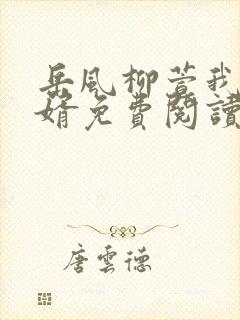 岳風柳萱我
婿免費閱讀
唐雲德